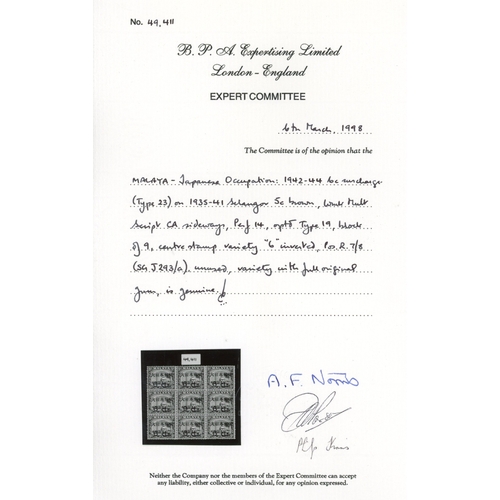 No. 49,411
B. P. A. Expertising Limited
London - England
EXPERT COMMITTEE
6th March, 1998
The Committee is of the opinion that the
MALAYA - Japanese Occupation: 1942-44 6c surcharge
(Type 23) on 1935-41 Selangor 5c brown, wmk Mult
Script CA sideways, Perf 14, optd Type 19, block
of 9, centre stamp variety "6" inverted, Pos R. 7/8
(SG J293/a) unused, variety with full original
gum, is genuine.
49,411
MALAYA MALAYA MALAYA
A. F. Norris
Neither the Company nor the members of the Expert Committee can accept
any liability, either collective or individual, for any opinion expressed.